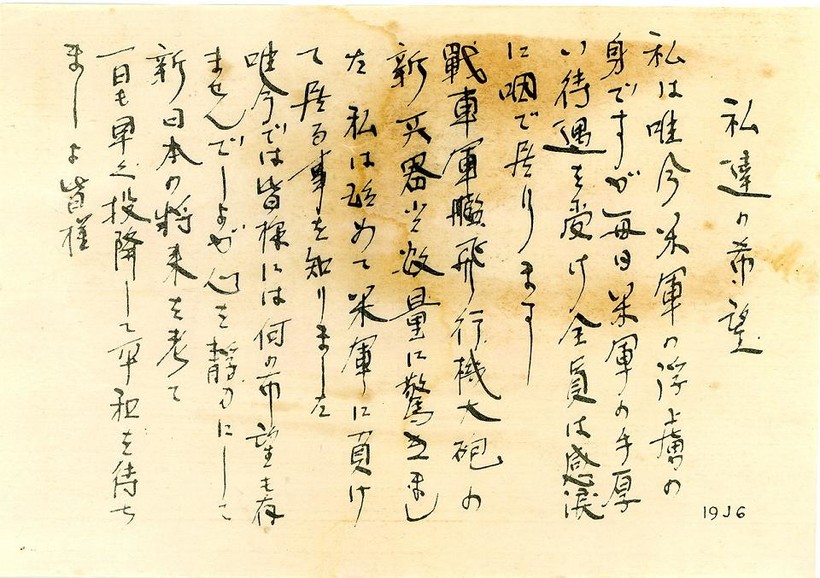 私達の希望
私は唯今米軍の浮虜の
身ですが毎日米軍の手厚
い待遇を受け全員は感涙
に咽で居ります
戰車軍艦飛行機大砲の
新兵器と数量に驚きまし
た 私は始めて米軍に負け
て居る事を知りました
唯今では皆様には何の希望も有
ませんでしよが心を静かにして
新日本の将来を考て
一日も早く投降して平和を待ち
ましよ皆様
19J6